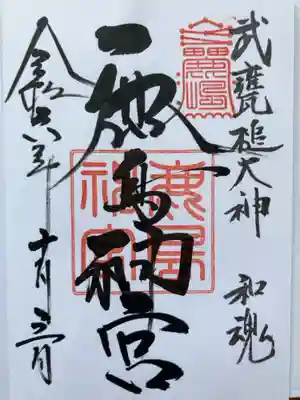 武甕槌大神 和魂
鹿島神宮
令和六年 十月三日
鹿島
神宮